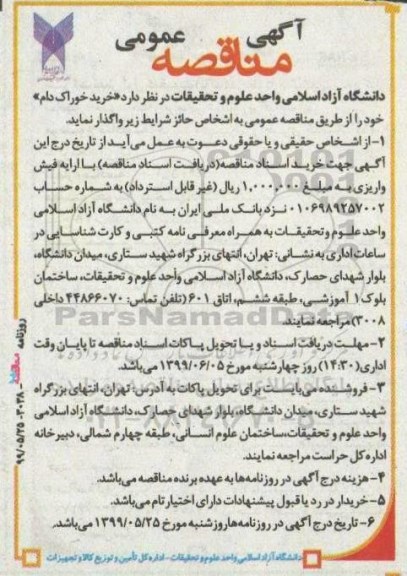 آگهی
مناقصه
عمومی
دانشگاه آزاد اسلامی واحد علوم و تحقیقات در نظر دارد «خرید خوراک دام»
خود را از طریق مناقصه عمومی به اشخاص حائز شرایط زیر واگذار نماید.
۱- از اشخاص حقیقی و یا حقوقی دعوت به عمل می‌آید از تاریخ درج این
آگهی جهت خرید اسناد مناقصه (دریافت اسناد مناقصه) با ارایه فیش
واریزی به مبلغ ۱،۰۰۰،۰۰۰ ریال (غیر قابل استرداد) به شماره حساب
۰۱۰۶۹۸۹۲۵۷۰۰۲ نزد بانک ملی ایران به نام دانشگاه آزاد اسلامی
واحد علوم و تحقیقات به همراه معرفی نامه کتبی و کارت شناسایی در
ساعات اداری به نشانی: تهران، انتهای بزرگراه شهید ستاری، میدان دانشگاه،
بلوار شهدای حصارک، دانشگاه آزاد اسلامی واحد علوم و تحقیقات، ساختمان
بلوک۱ آموزشی، طبقه ششم، اتاق ۶۰۱ (تلفن تماس: ۴۴۸۶۶۰۷۰ داخلی
۳۰۰۸) مراجعه نمایند.
۲- مهلت دریافت اسناد و یا تحویل پاکات اسناد مناقصه تا پایان وقت
اداری (۱۴:۳۰) روز چهارشنبه مورخ ۱۳۹۹/۰۶/۰۵ می‌باشد.
۳- فروشنده می‌بایست برای تحویل پاکات به آدرس: تهران، انتهای بزرگراه
شهید ستاری، میدان دانشگاه، بلوار شهدای حصارک، دانشگاه آزاد اسلامی
واحد علوم و تحقیقات، ساختمان علوم انسانی، طبقه چهارم شمالی، دبیرخانه
اداره کل حراست مراجعه نمایند.
۴- هزینه درج آگهی در روزنامه‌ها به عهده برنده مناقصه می‌باشد.
۵- خریدار در رد یا قبول پیشنهادات دارای اختیار تام می‌باشد.
۶- تاریخ درج آگهی در روزنامه‌ها روز شنبه مورخ ۱۳۹۹/۰۵/۲۵ می‌باشد.
دانشگاه آزاد اسلامی واحد علوم و تحقیقات - اداره کل تأمین و توزیع کالا و تجهیزات
روزنامه
۲۰۳۸ - ۹۹/۰۵/۲۵
ParsNamadData